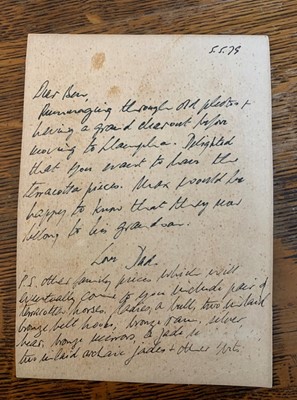 5.5.79
Dear Ben,
Rummaging through old photos +
having a grand clearout before
moving to Llangha. Delighted
that you want to have the
terracotta pieces. Max would be
happy to know that they now
belong to his grandson.
Love Dad.
P.S. other family pieces which will
eventually come to you include pair of
terracotta horses, ladies, a bull, two inlaid
bronze belt hooks, bronze ram, silver
bear, bronze mirrors, & jade
this inlaid archaic jades + other